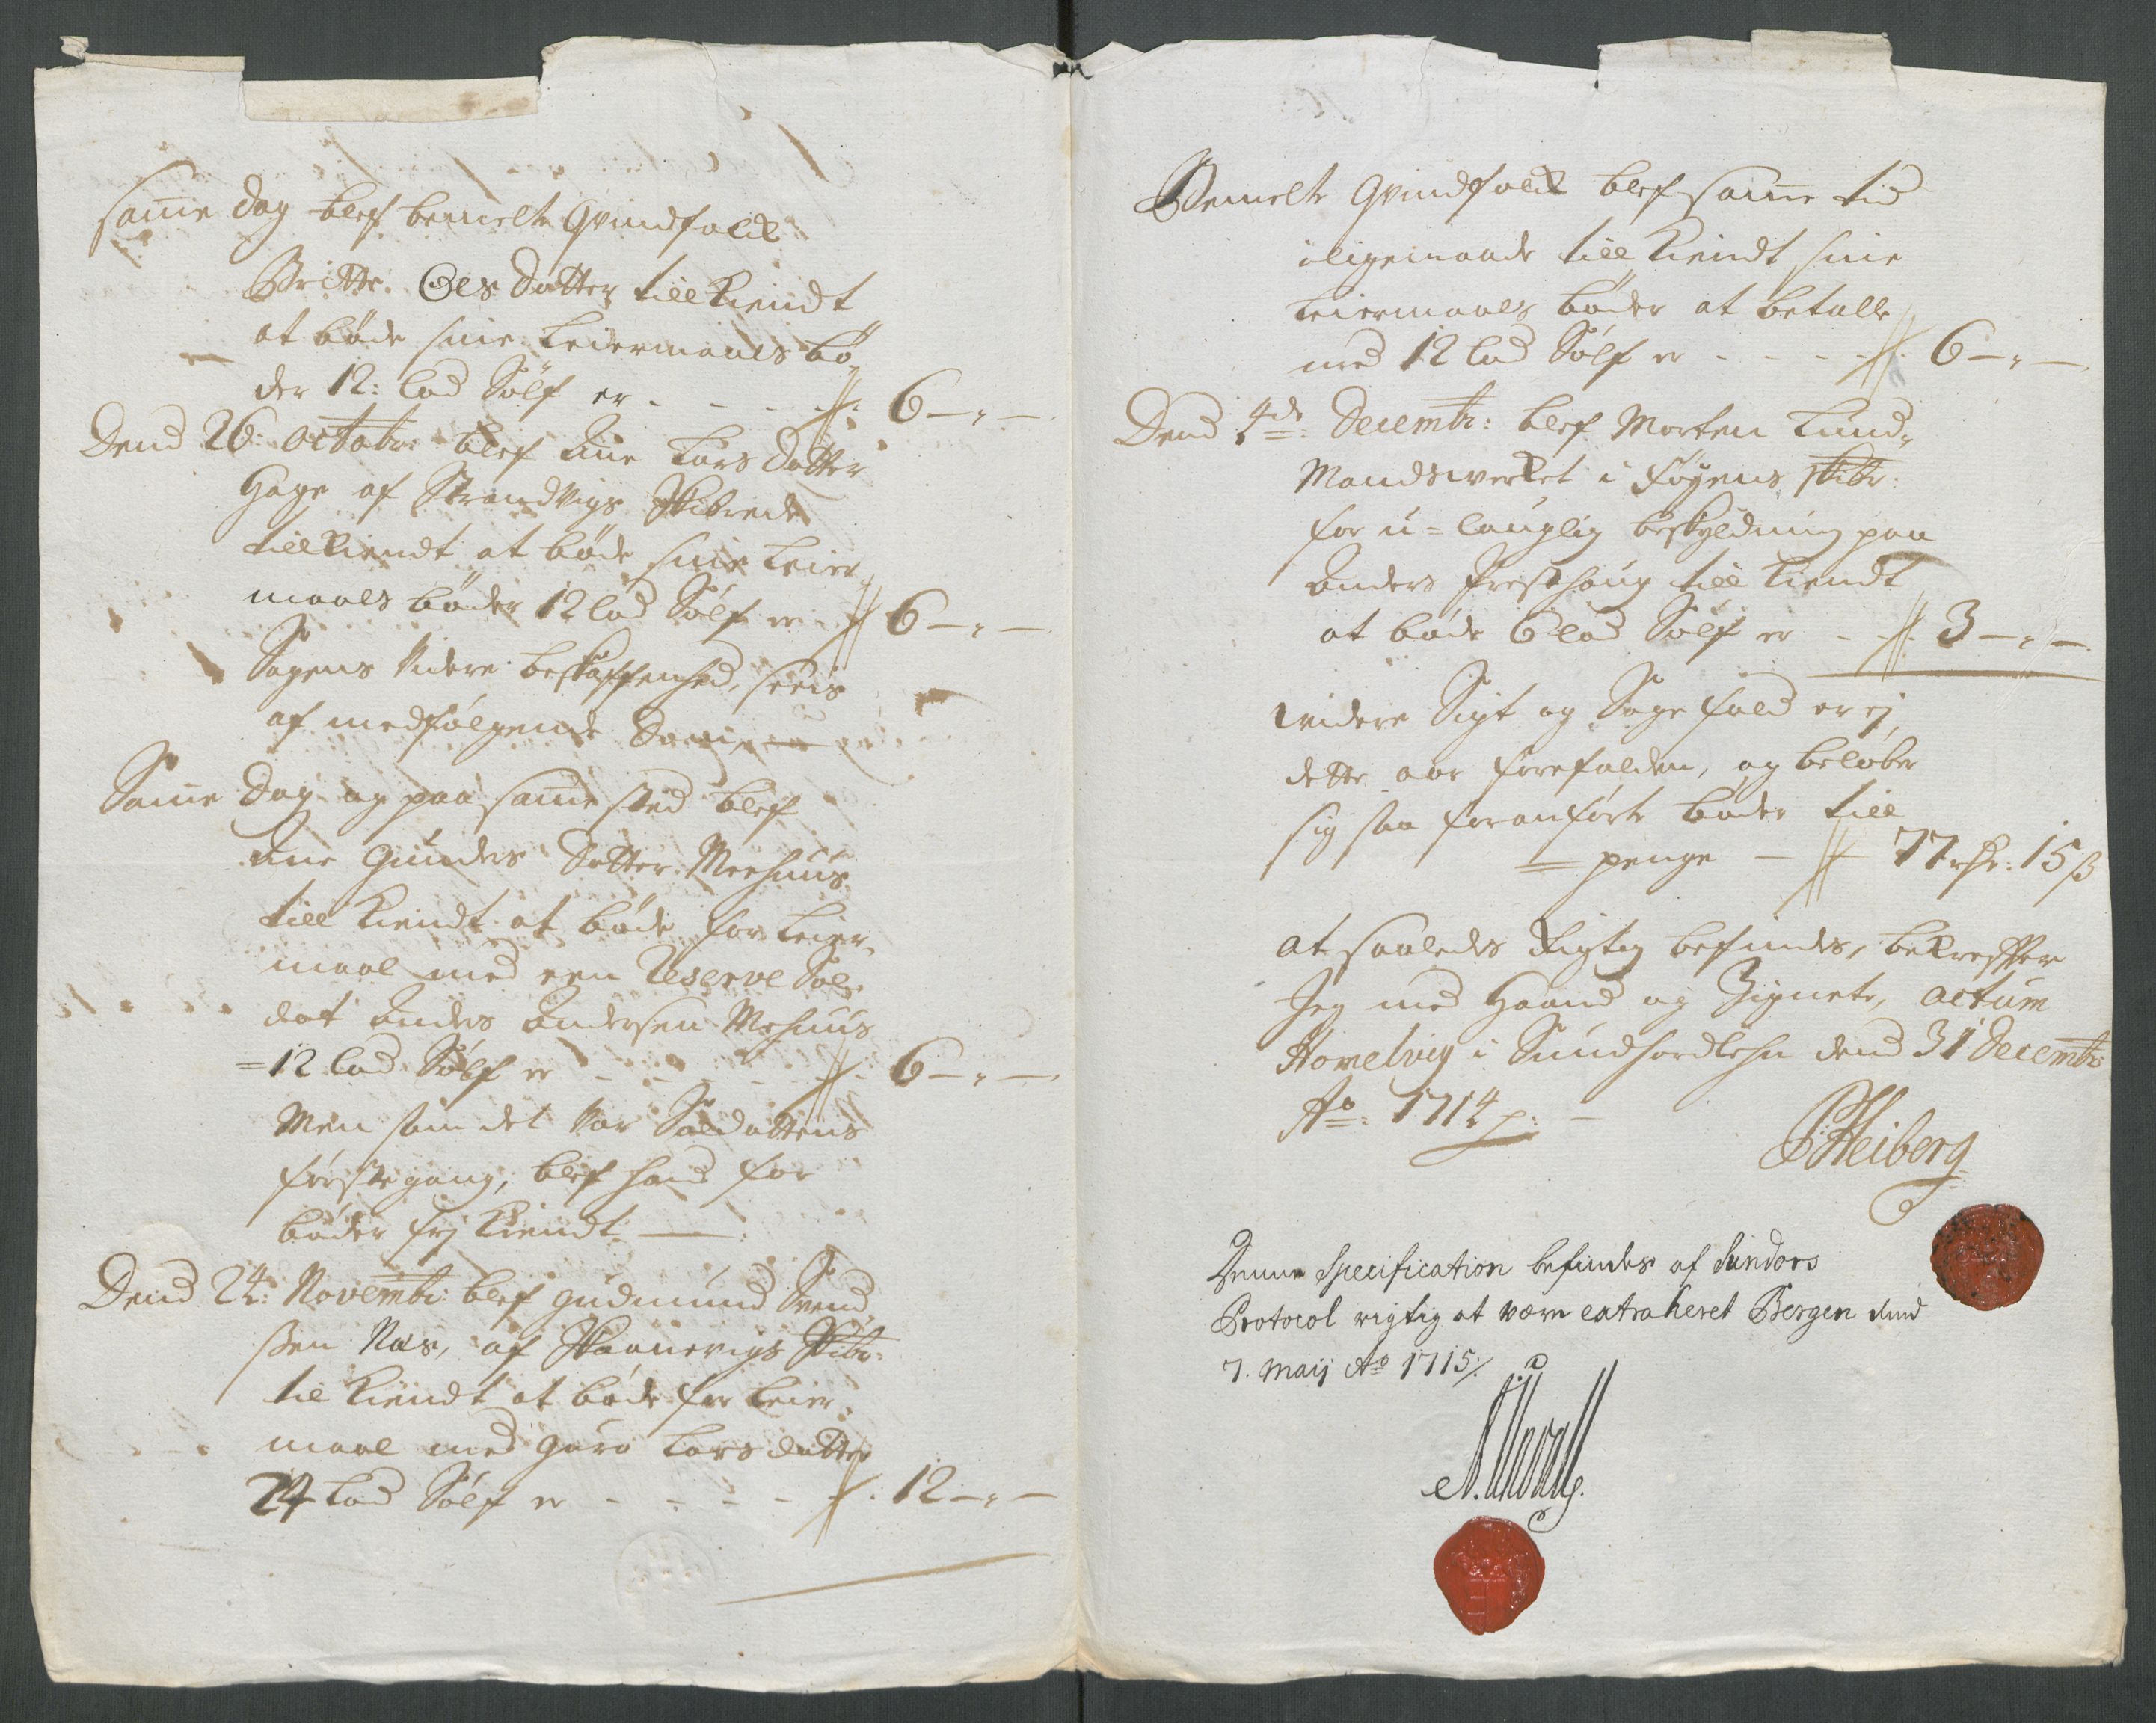 Samme dag blef bemelte Qvindfolck
Britte Ols Datter till kiendt
at bøde sine Leiermaals bø-
der 12: lod Sølf er - - - - 6 - " -
Dend 26: octobr: blef Ane Lars Datter
Hage af Strandvigs Skibrede
till kiendt at bøde sine Leier-
maals bøder 12 lod Sølf er - 6 - " -
Sagens videre beskaffenhed, sees
af medfølgende Dom
Samme Dag og paa samme sted blef
Ane Gunders Datter Mehuus
till kiendt at bøde for Leier-
maal med een Reserve Sol-
dat Anders Andersen Mehuus
= 12 lod Sølf er - - - - 6 - " -
Men som det var Soldattens
første gang, blef hand for
bøder frj kiendt
Dend 24: Novembr: blef gudmund Svend
ßen Næs, af Skaanevigs Skibr:
til kiendt at bøde for Leier-
maal med Guro Lars datter
24 lod Sølf er - - - - - 12 - " -
Bemelte Qvindfolck blef samme tid
iligemaade till kiendt sine
Leiermaals bøder at betalle
med 12 lod Sølf er - - - - 6 - " -
Dend 4de: Decembr: blef Morten Lund-
Mandsverket i Føyens skibr:
for u-lauglig beskyldning paa
Anders Presthoug till kiendt
at bøde 6 lod Sølf er - - 3 - " -
widere Sigt og Sagefald er ej
dette aar forefalden, og beløber
sig saa foranførte bøder till
penge - 77 rdr: 15 ß
at saaledes Rigtig befindes, bekreffter
Jeg med Haand og Zignete, actum
Hovelvig i Sundhordlehn dend 31 Decembr:
Ao: 1714
P Heiberg
Denne Specification befindes af Sundørs
Protocol rigtig at være extraheret Bergen dend
7. Maij Ao 1715